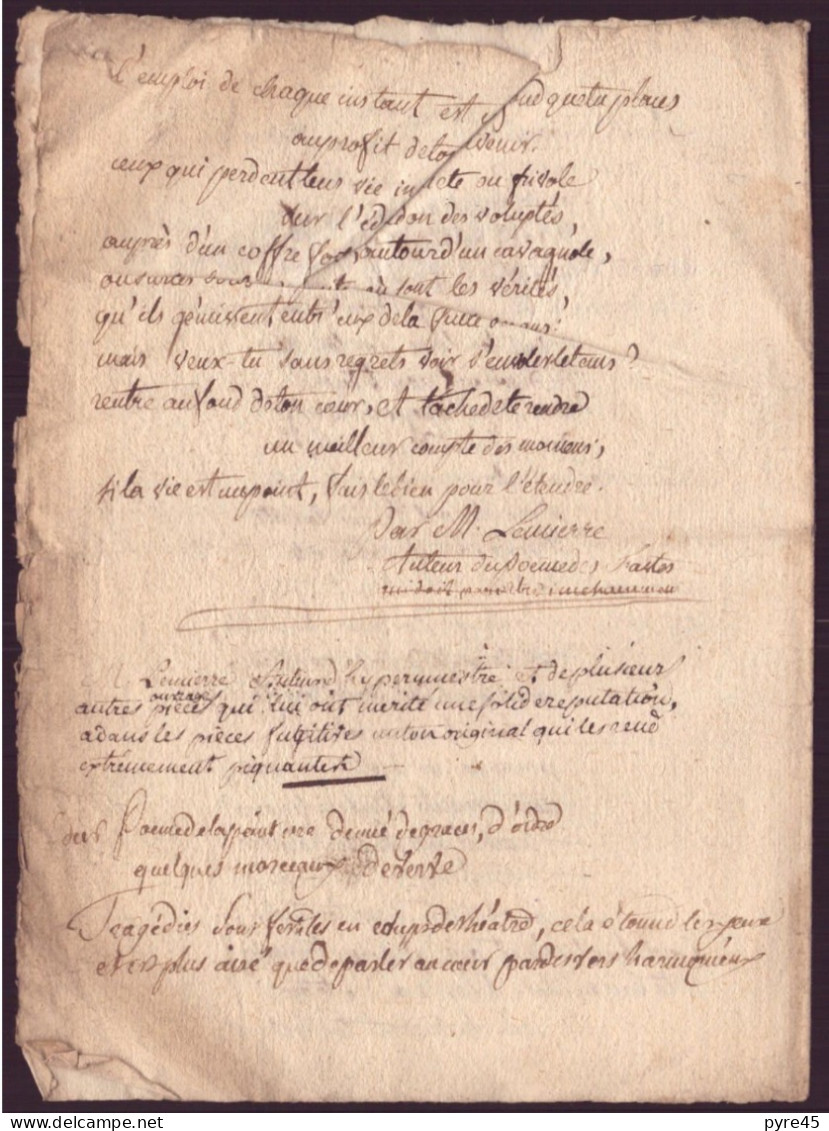 l'emploi de chaque instant est
au profit de ton
ceux qui perdent leur vie inquiete ou frivole
sur l'édredon des voluptés,
auprès d'un coffre fort autour d'un cavagnole,
sont les vérités,
qu'ils gémissent entr'eux de la
mais veux-tu sans regrets voir s'ecouler le tems?
rentre au fond de ton cœur, et tache de te rendre
un meilleur compte des momens,
si la vie est un point, fais le bien pour l'étendre.
Par M. Lemierre
Auteur du Poeme des Fastes
M. Lemierre Auteur d'hypermnestre et de plusieurs
autres pièces ouvrages qui lui ont merité une solide reputation,
a dans les pièces fugitives un ton original qui les rend
extrêmement piquantes
son Poeme de la peinture denué de graces, d'ordre
quelques morceaux de verve
Tragédies sont fertiles en coups de théatre, cela étonne les yeux
et est plus aisé que de parler au cœur par des vers harmonieux
pyre45